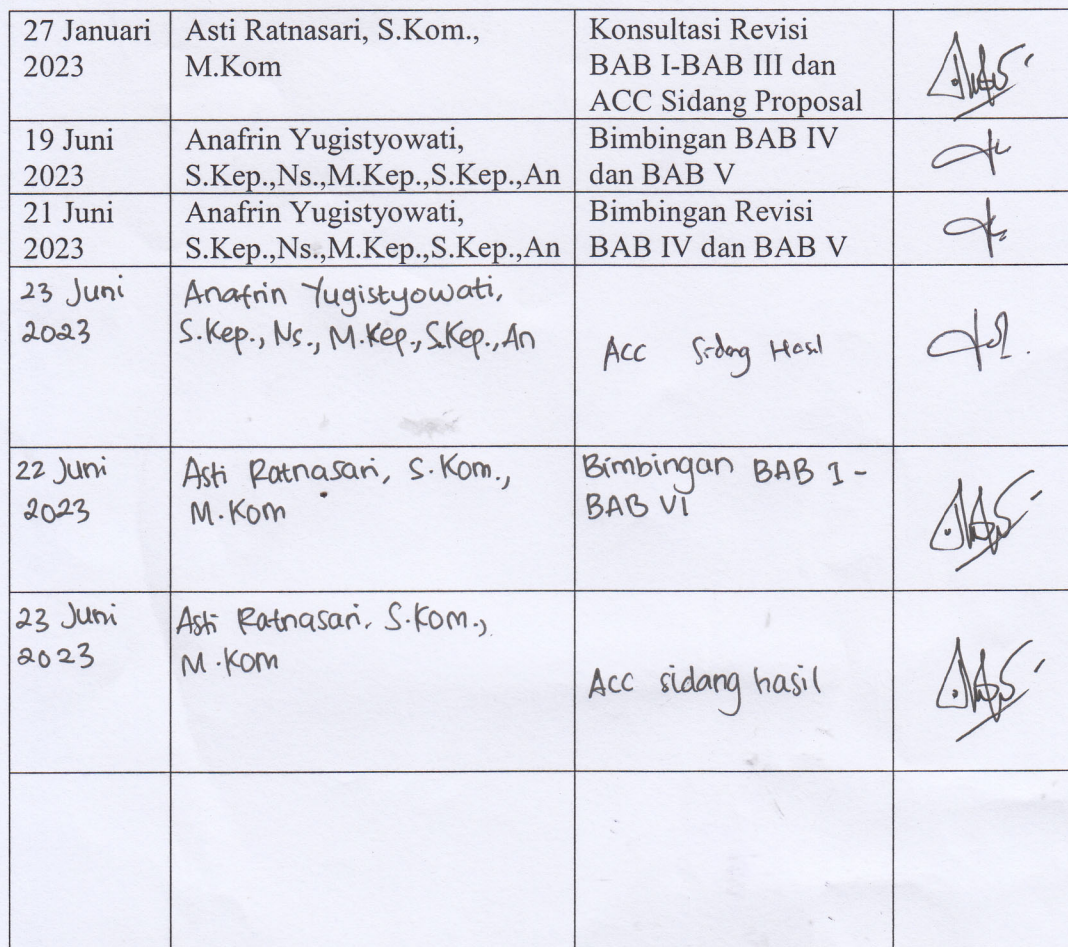 27 Januari
2023
Asti Ratnasari, S.Kom.,
M.Kom
Konsultasi Revisi
BAB I-BAB III dan
ACC Sidang Proposal
19 Juni
2023
Anafrin Yugistyowati,
S.Kep.,Ns.,M.Kep.,S.Kep.,An
Bimbingan BAB IV
dan BAB V
21 Juni
2023
Anafrin Yugistyowati,
S.Kep.,Ns.,M.Kep.,S.Kep.,An
Bimbingan Revisi
BAB IV dan BAB V
23 Juni
2023
Anafrin Yugistyowati,
S.Kep., Ns., M.Kep., S.Kep., An
Acc Sidang Hasil
22 Juni
2023
Asti Ratnasari, S.Kom.,
M.Kom
Bimbingan BAB I -
BAB VI
23 Juni
2023
Asti Ratnasari, S.Kom.,
M.Kom
Acc sidang hasil